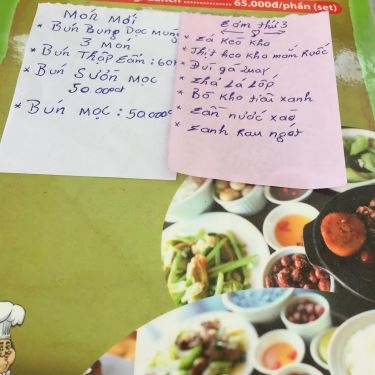 Lunch ................ 65.000đ/phần (set)
Món Mới
* Bún Bung Dọc Mùng
3 Món
* Bún Thập Cẩm: 60
* Bún Sườn Mọc
50.000đ
* Bún mọc: 50.000đ
Cơm thứ 3
* Cá kèo kho
* Thịt heo kho mắm Ruốc
* Đùi gà quay
* Chả Lá Lốp
* Bò kho tiêu xanh
* Cần nước xào
* Canh Rau ngót